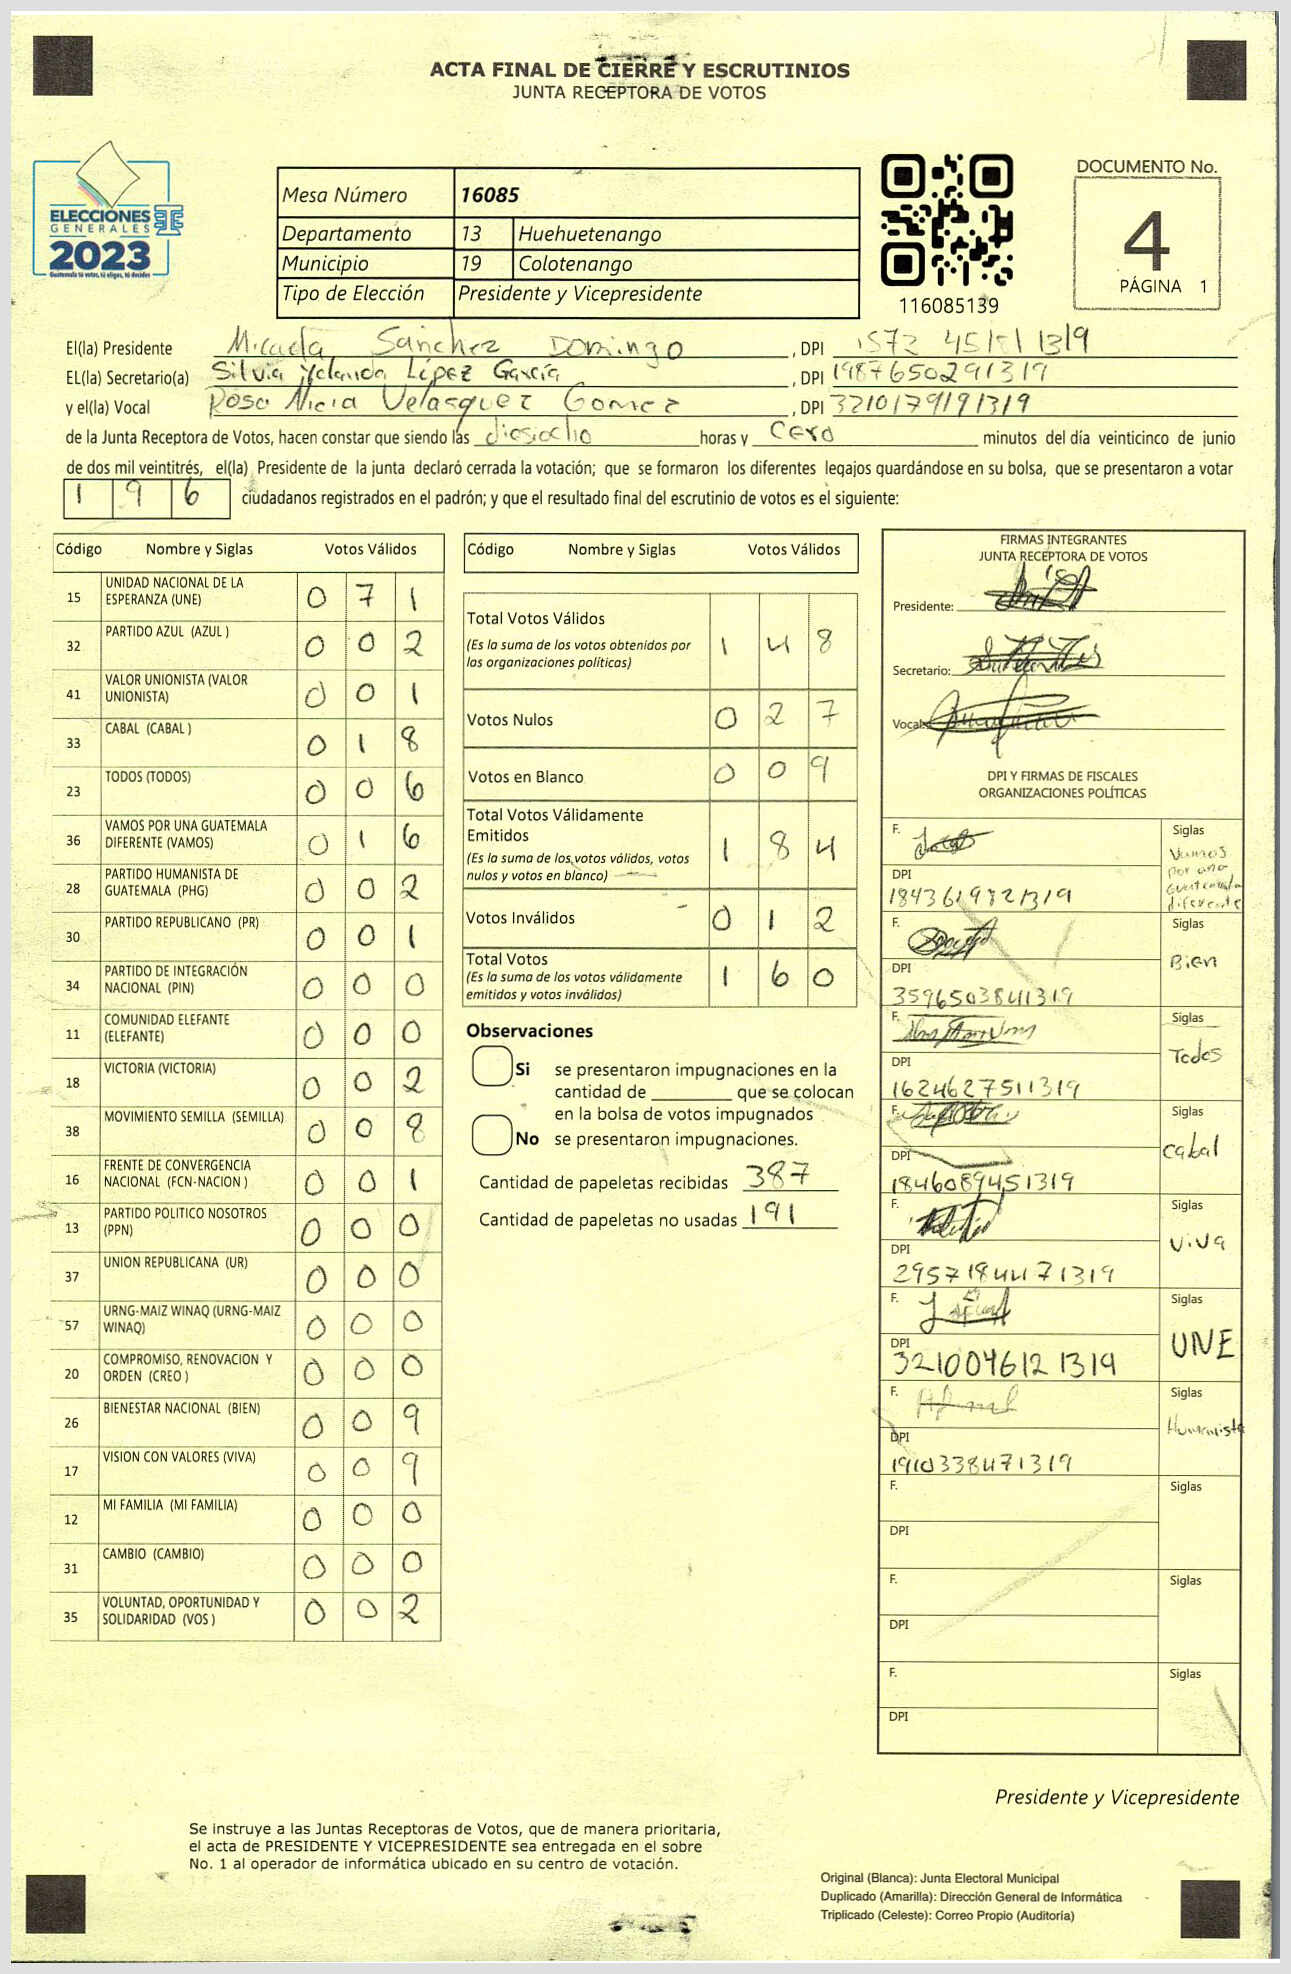 ACTA FINAL DE CIERRE Y ESCRUTINIOS
JUNTA RECEPTORA DE VOTOS
ELECCIONES
GENERALES
2023
Guatemala tú votas, tú eliges, tú decides
Mesa Número 16085
Departamento 13 Huehuetenango
Municipio 19 Colotenango
Tipo de Elección Presidente y Vicepresidente
116085139
DOCUMENTO No.
4
PÁGINA 1
El(la) Presidente Micaela Sánchez Domingo , DPI 1319
EL(la) Secretario(a) Silvia Yolanda López García , DPI 1987650291319
y el(la) Vocal Rosa Velasquez Gomez , DPI 3210179191319
de la Junta Receptora de Votos, hacen constar que siendo las diesiocho horas y cero minutos del día veinticinco de junio
de dos mil veintitrés, el(la) Presidente de la junta declaró cerrada la votación; que se formaron los diferentes legajos guardándose en su bolsa, que se presentaron a votar
1 9 6 ciudadanos registrados en el padrón; y que el resultado final del escrutinio de votos es el siguiente:
Código Nombre y Siglas Votos Válidos
15 UNIDAD NACIONAL DE LA ESPERANZA (UNE) 0 7 1
32 PARTIDO AZUL (AZUL ) 0 0 2
41 VALOR UNIONISTA (VALOR UNIONISTA) 0 0 1
33 CABAL (CABAL ) 0 1 8
23 TODOS (TODOS) 0 0 6
36 VAMOS POR UNA GUATEMALA DIFERENTE (VAMOS) 0 1 6
28 PARTIDO HUMANISTA DE GUATEMALA (PHG) 0 0 2
30 PARTIDO REPUBLICANO (PR) 0 0 1
34 PARTIDO DE INTEGRACIÓN NACIONAL (PIN) 0 0 0
11 COMUNIDAD ELEFANTE (ELEFANTE) 0 0 0
18 VICTORIA (VICTORIA) 0 0 2
38 MOVIMIENTO SEMILLA (SEMILLA) 0 0 8
16 FRENTE DE CONVERGENCIA NACIONAL (FCN-NACION ) 0 0 1
13 PARTIDO POLITICO NOSOTROS (PPN) 0 0 0
37 UNION REPUBLICANA (UR) 0 0 0
57 URNG-MAIZ WINAQ (URNG-MAIZ WINAQ) 0 0 0
20 COMPROMISO, RENOVACION Y ORDEN (CREO ) 0 0 0
26 BIENESTAR NACIONAL (BIEN) 0 0 9
17 VISION CON VALORES (VIVA) 0 0 9
12 MI FAMILIA (MI FAMILIA) 0 0 0
31 CAMBIO (CAMBIO) 0 0 0
35 VOLUNTAD, OPORTUNIDAD Y SOLIDARIDAD (VOS ) 0 0 2
Código Nombre y Siglas Votos Válidos
Total Votos Válidos 1 4 8
(Es la suma de los votos obtenidos por
las organizaciones políticas)
Votos Nulos 0 2 7
Votos en Blanco 0 0 9
Total Votos Válidamente
Emitidos 1 8 4
(Es la suma de los votos válidos, votos
nulos y votos en blanco)
Votos Inválidos 0 1 2
Total Votos 1 6 0
(Es la suma de los votos válidamente
emitidos y votos inválidos)
Observaciones
Si se presentaron impugnaciones en la
cantidad de ________ que se colocan
en la bolsa de votos impugnados
No se presentaron impugnaciones.
Cantidad de papeletas recibidas 387
Cantidad de papeletas no usadas 191
FIRMAS INTEGRANTES
JUNTA RECEPTORA DE VOTOS
Presidente:
Secretario:
Vocal:
DPI Y FIRMAS DE FISCALES
ORGANIZACIONES POLÍTICAS
F. Siglas
Vamos
por una
Guatemala
diferente
DPI
1843619821319
F. Siglas
Bien
DPI
3596503841319
F. Siglas
Todos
DPI
1624627511319
F. Siglas
cabal
DPI
1846089451319
F. Siglas
viva
DPI
2957184471319
F. Siglas
UNE
DPI
3210046121319
F. Siglas
Humanista
DPI
1910338471319
F. Siglas
DPI
F. Siglas
DPI
F. Siglas
DPI
Presidente y Vicepresidente
Se instruye a las Juntas Receptoras de Votos, que de manera prioritaria,
el acta de PRESIDENTE Y VICEPRESIDENTE sea entregada en el sobre
No. 1 al operador de informática ubicado en su centro de votación.
Original (Blanca): Junta Electoral Municipal
Duplicado (Amarilla): Dirección General de Informática
Triplicado (Celeste): Correo Propio (Auditoría)